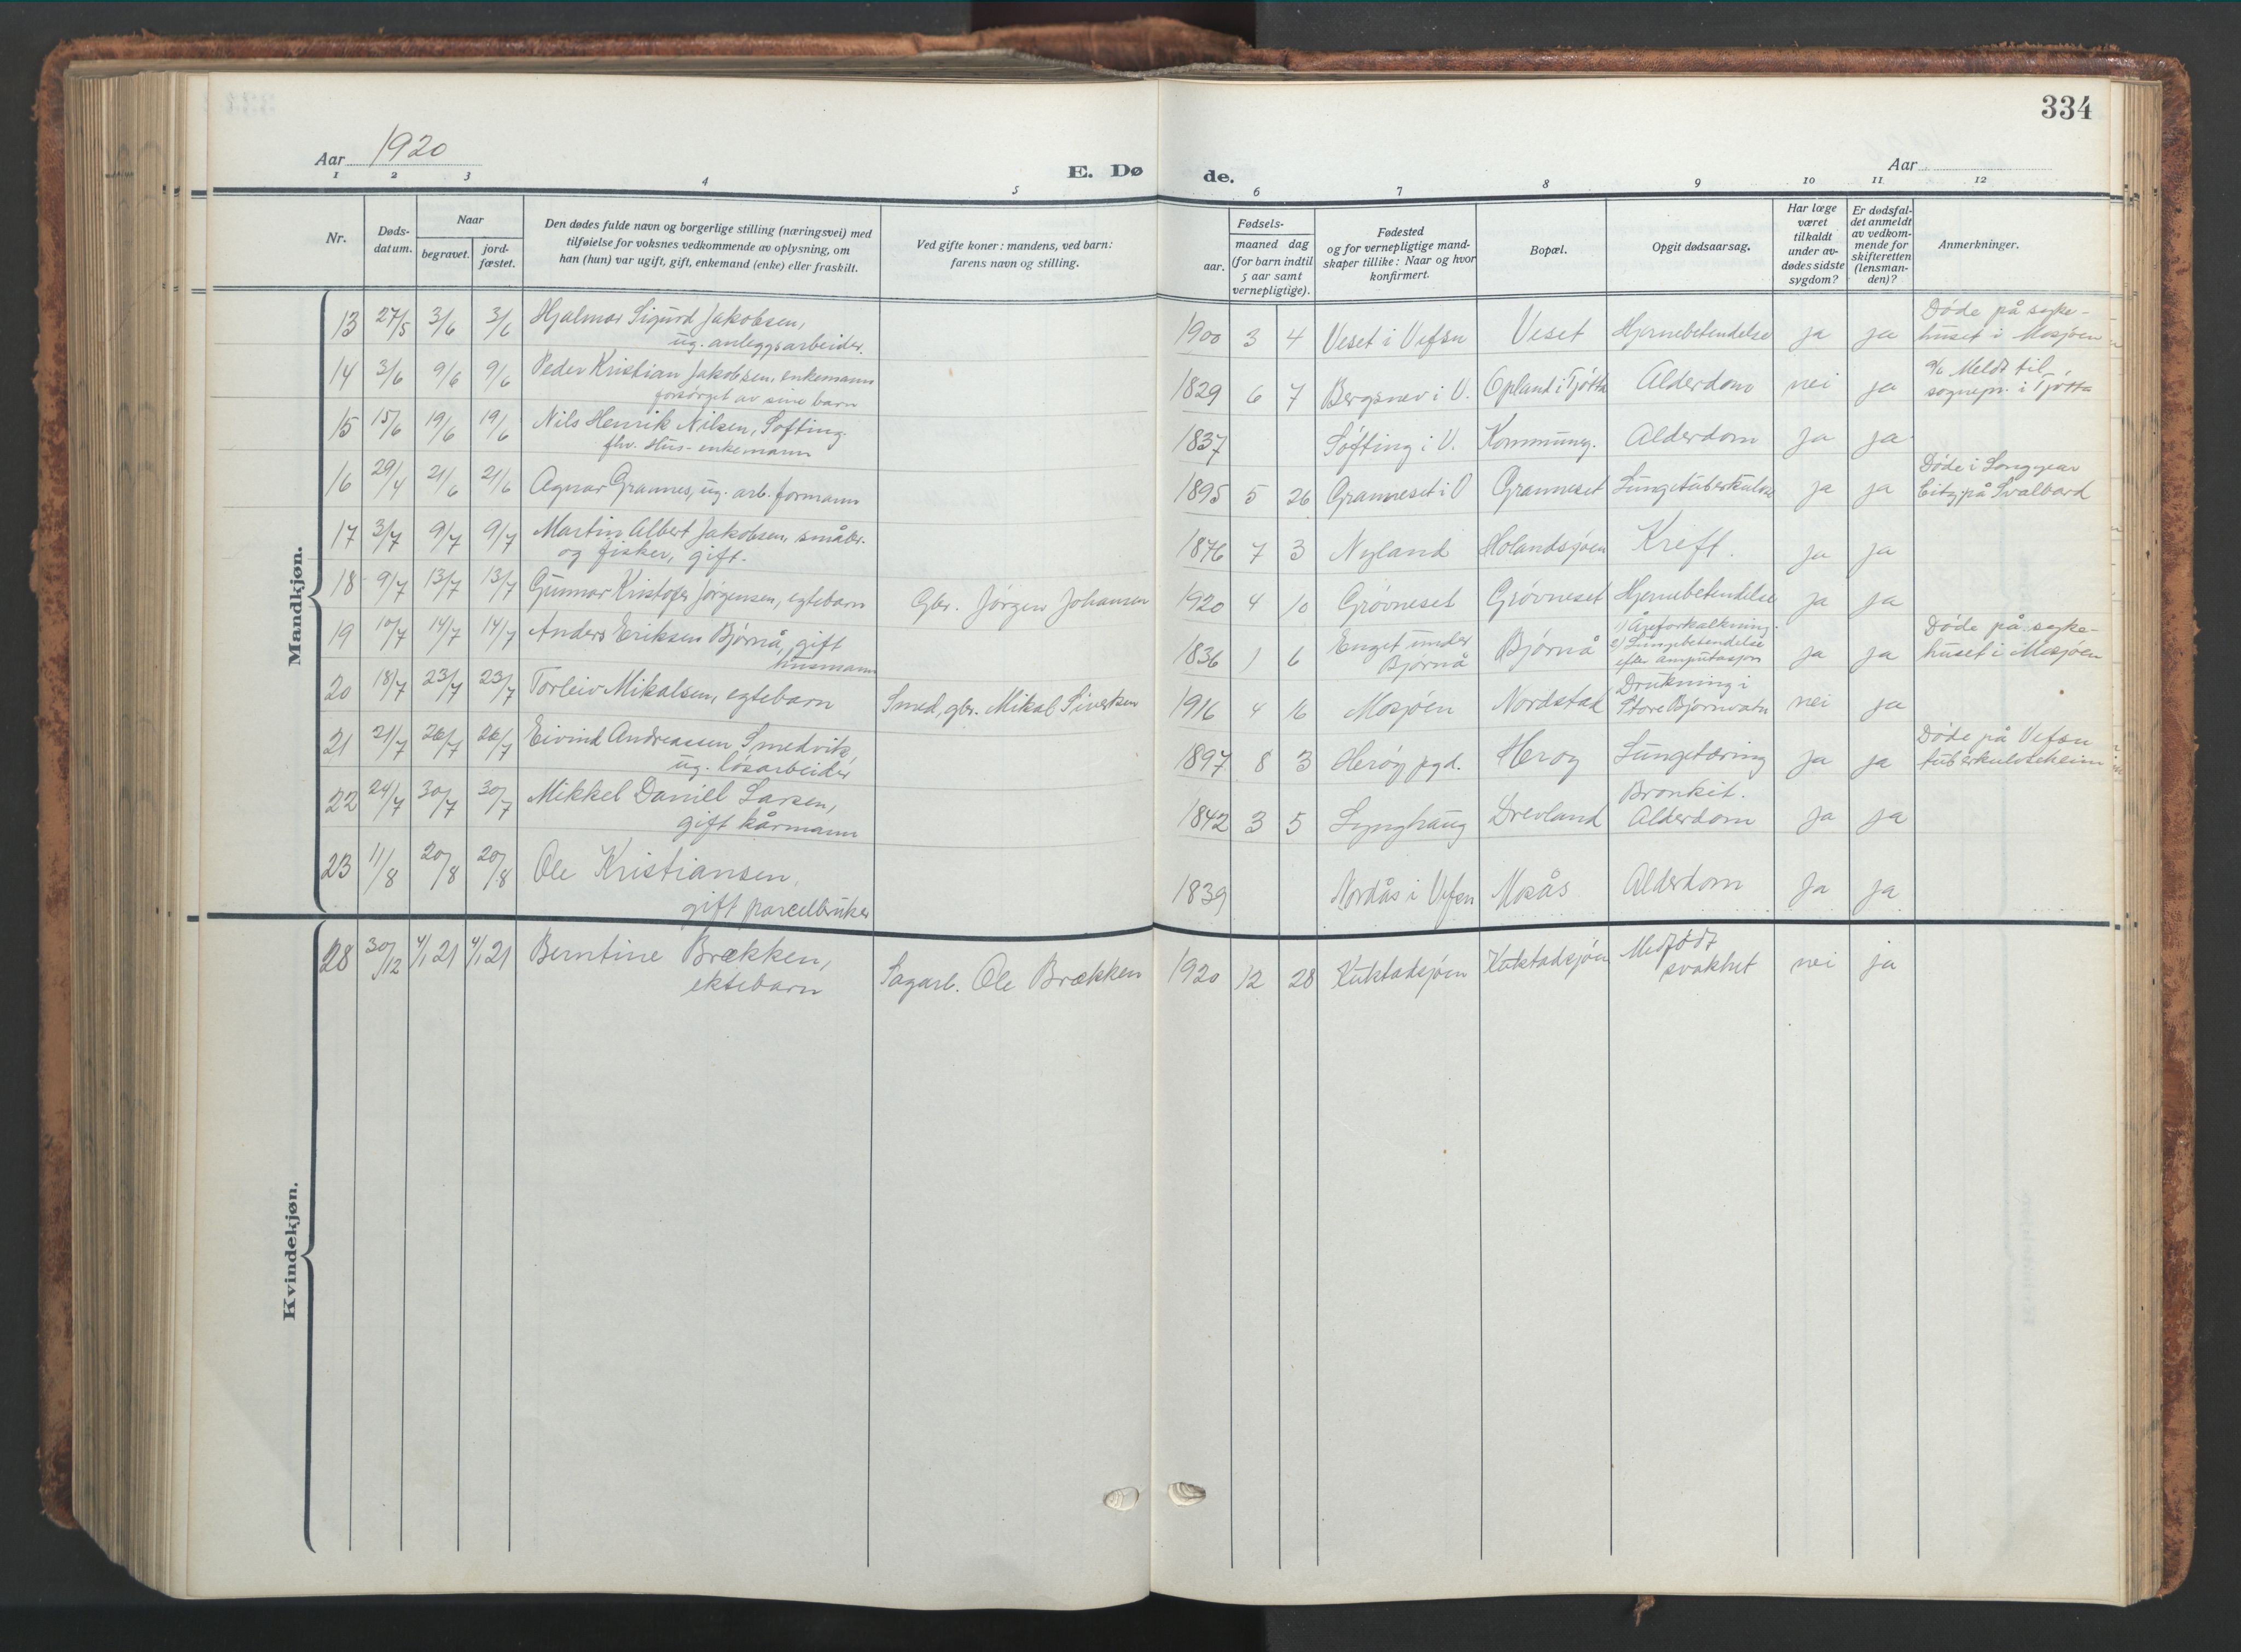 334
Aar 1920
E. Dø de.
Aar
1 2 3 4 5 6 7 8 9 10 11 12
Nr.
Døds-
datum.
Naar
begravet.
jord-
fæstet.
Den dødes fulde navn og borgerlige stilling (næringsvei) med
tilføielse for voksnes vedkommende av oplysning, om
han (hun) var ugift, gift, enkemand (enke) eller fraskilt.
Ved gifte koner: mandens, ved barn:
farens navn og stilling.
Fødsels-
aar.
maaned dag
(for barn indtil
5 aar samt
vernepligtige).
Fødested
og for vernepligtige mand-
skaper tillike: Naar og hvor
konfirmert.
Bopæl.
Opgit dødsaarsag.
Har læge
været
tilkaldt
under av-
dødes sidste
sygdom?
Er dødsfal-
det anmeldt
av vedkom-
mende for
skifteretten
(lensman-
den)?
Anmerkninger.
Mandkjøn.
13 27/5 3/6 3/6 Hjalmar Sigurd Jakobsen,
ug. anleggsarbeider.
1900 3 4 Veset i Vefsn Veset Hjernebetendelse ja ja
Døde på syke-
huset i Mosjøen
14 3/6 9/6 9/6 Peder Kristian Jakobsen, enkemann
forsørget av sine barn
1829 6 7 Bergsnev i V. Opland i Tjøtta Alderdom nei ja
Meldt til
sognepr. i Tjøtta
15 15/6 19/6 19/6 Nils Henrik Nilsen, Søfting.
fhv. Hus- enkemann
1837 Søfting i V. Kommuneg. Alderdom Ja ja
16 29/4 21/6 21/6 Agnar Grannes, ug. arb. formann
1895 5 26 Granneset i Granneset Lungetuberkulose ja ja
Døde i Longyear
City på Svalbard
17 3/7 9/7 9/7 Martin Albert Jakobsen, småbr.
og fisker, gift.
1876 7 3 Nyland Holandsjøen Kreft. ja ja
18 9/7 13/7 13/7 Gunnar Kristofer Jørgensen, egtebarn Gbr. Jørgen Johansen
1920 4 10 Grøvneset Grøvneset Hjernebetendelse ja ja
19 10/7 14/7 14/7 Anders Eriksen Bjørnå, gift
husmann
1836 1 6 Enget under
Bjørnå
Bjørnå
1) Åreforkalkning.
2) Lungebetendelse
efter amputasjon
ja ja
Døde på syke-
huset i Mosjøen
20 18/7 23/7 23/7 Torleiv Mikalsen, egtebarn Smed, gbr. Mikal Sivertsen
1916 4 16 Mosjøen Nordstad
Drukning i
Store Bjørnvatn
nei ja
21 21/7 26/7 26/7 Eivind Andreassen Smedvik,
ug. løsarbeider
1897 8 3 Herøy pgd. Herøy Lungetæring ja ja
Døde på Vefsn
tuberkuloseheim
22 24/7 30/7 30/7 Mikkel Daniel Larsen,
gift kårmann
1842 3 5 Lynghaug Drevland
Bronkit.
Alderdom
Ja ja
23 11/8 20/8 20/8 Ole Kristiansen,
gift parcelbruker
1839 Nordås i Vefsn Mosås Alderdom Ja ja
Kvindekjøn.
28 30/12 4/1 21 4/1 21 Berntine Brækken,
ektebarn
Sagarb. Ole Brækken
1920 12 28 Kulstadsjøen Kulstadsjøen
Medfødt
svakhet
nei ja